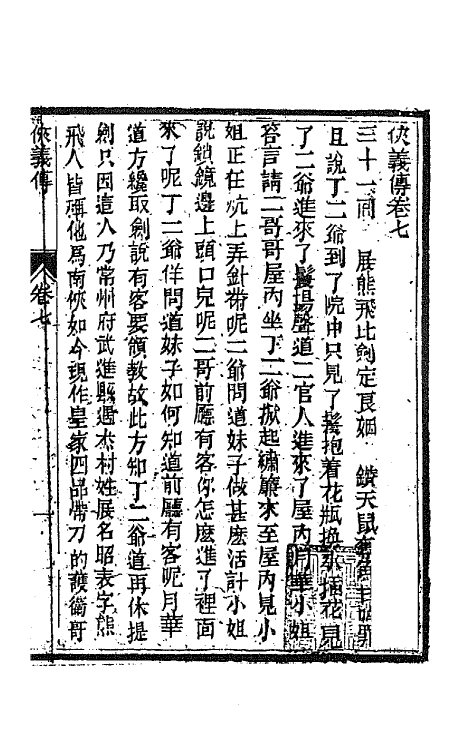 俠義傳卷七
三十一回 展熊飛比劍定良姻 鑽天鼠奪魚
且說丁二爺到了院中只見丫鬟抱着花瓶換水插花見
了二爺進來丫鬟揚聲道二官人進來了屋內月華小姐
答言請二哥哥屋內坐丁二爺掀起繡簾來至屋內見小
姐正在炕上弄針黹呢二爺問道妹子做甚麽活計小姐
說鎖鏡邊上頭口兒呢二哥前廳有客你怎麽進了裡面
來了呢丁二爺佯問道妹子如何知道前廳有客呢月華
道方纔取劍說有客要領教故此方知丁二爺道再休提
劍只因這人乃常州府武進縣遇杰村姓展名昭表字熊
飛人皆稱他爲南俠如今現作皇家四品帶刀的護衛哥
俠義傳
卷七
一